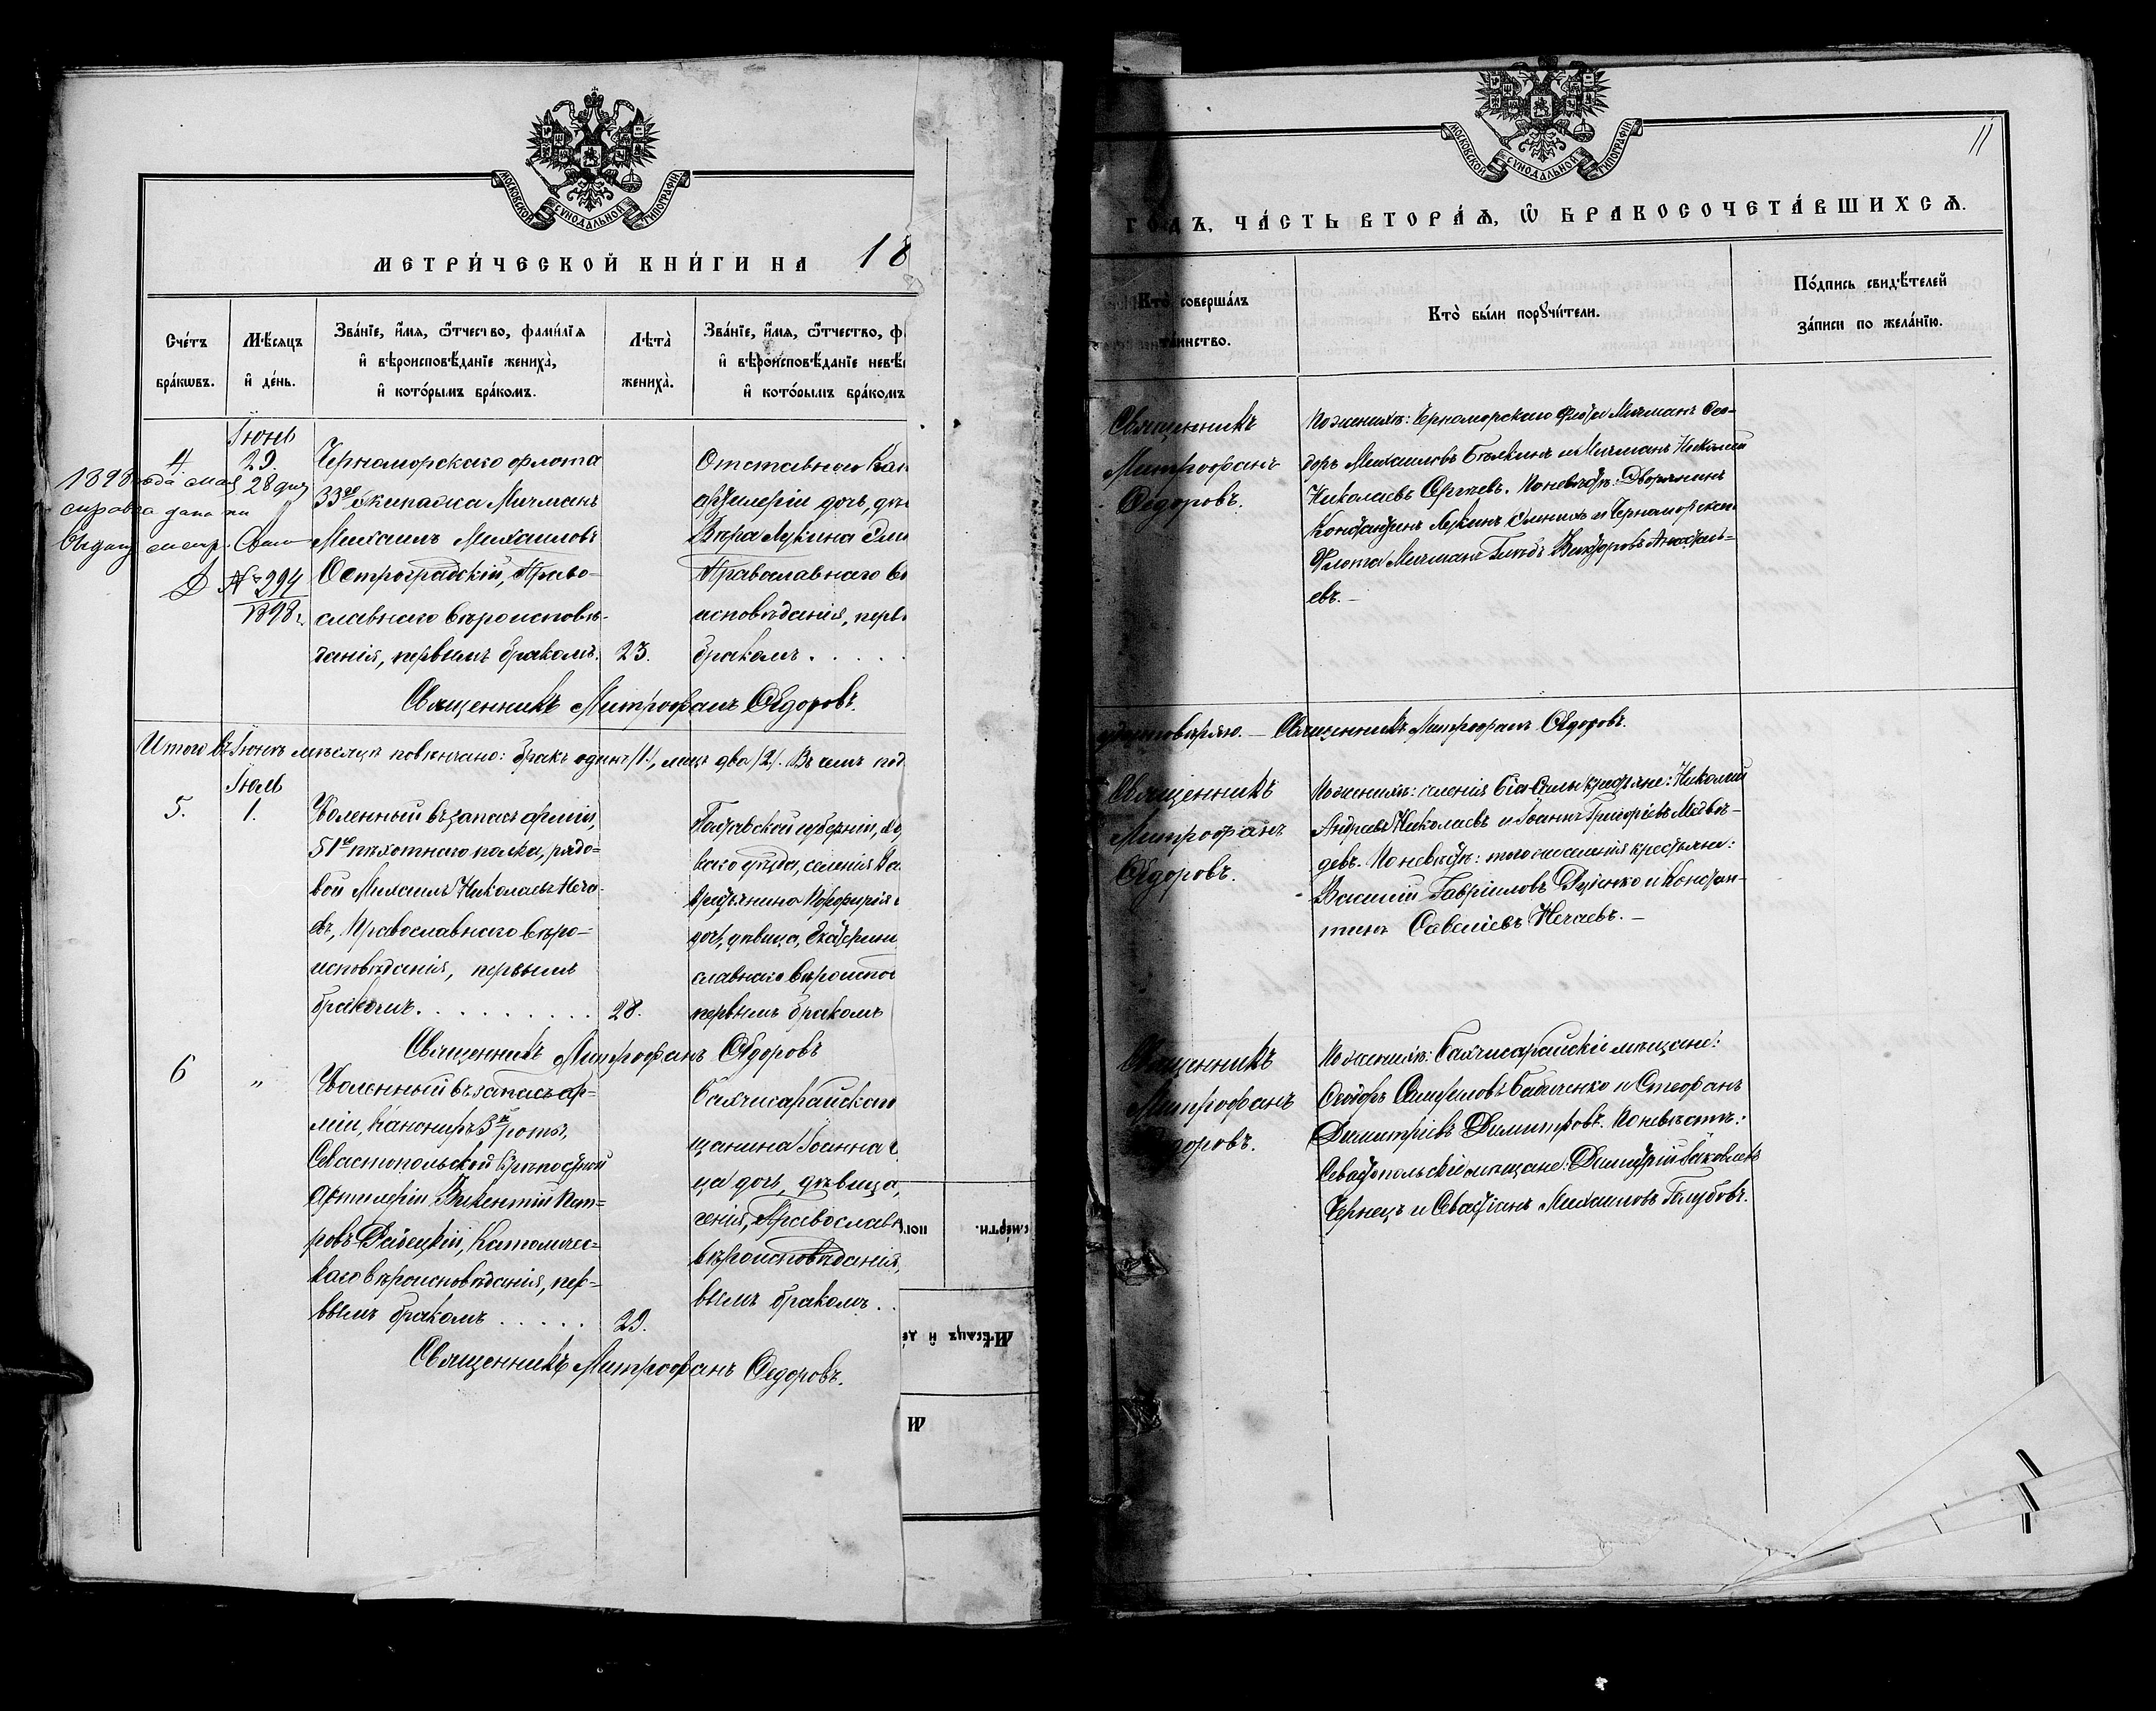 МОСКОВСКОЙ СѴНОДАЛЬНОЙ ТИПОГРАФІИ
МЕТРИ́ЧЕСКОЙ КНИ́ГИ НА 18
Сче́тъ бра́кѡвъ.
Мѣ́сяцъ и҆ де́нь.
Зва́нїе, и҆́мя, ѻ҆́тчество, фами́лїя
и҆ вѣроисповѣ́данїе жениха̀,
и҆ кото́рымъ бра́комъ.
Лѣта̀ жениха̀.
Зва́нїе, и҆́мя, ѻ҆́тчество, ф
и҆ вѣроисповѣ́данїе невѣ
и҆ кото́рымъ бра́комъ
4.
Іюнь
29.
1898 года мая 28 дня
справка дана на
выдачу
№ 294
1898 г.
Черноморскаго флота
33го Экипажа Мичманъ
Михаилъ Михаиловъ
Остроградскій, Право-
славнаго вѣроисповѣ-
данія, первымъ бракомъ.
23.
Отставнаго
дочь,
Вѣра Лукина
Православнаго в
исповѣданія, перв
бракомъ . . . . .
Священникъ Митрофанъ Ѳедоровъ.
Итого въ Іюнѣ мѣсяцѣ повѣнчано: бракъ одинъ /1/, лицъ два /2/. Въ чемъ под
5.
Іюль
1.
Уволенный въ запасъ арміи,
51го пѣхотнаго полка, рядо-
вой Михаилъ Николаевъ Неча-
евъ, Православнаго вѣро-
исповѣданія, первымъ
бракомъ . . . . . . . . .
28.
Полтавской губерніи,
скаго уѣзда, селенія
крестьянина Порфирія
дочь, дѣвица, Екатерина
славнаго вѣроиспов
первымъ бракомъ
Священникъ Митрофанъ Ѳедоровъ
6
"
Уволенный въ запасъ ар-
міи, Канониръ 3й роты,
Севастопольской крѣпостной
Артилеріи Викентій
Католичес-
каго вѣроисповѣданія, пер-
вымъ бракомъ . . . . .
29.
Бахчисарайскаго
щанина Іоанна
ца дочь, дѣвица,
Православн
вѣроисповѣданія,
вымъ бракомъ . .
Священникъ Митрофанъ Ѳедоровъ.
сме́рти.
Мѣ́сяцъ и҆ де
МОСКОВСКОЙ СѴНОДАЛЬНОЙ ТИПОГРАФІИ
11
ГО́ДЪ, ЧА́СТЬ ВТОРА́Я, Ѡ҆ БРАКОСОЧЕТА́ВШИХСЯ.
Кто̀ соверша́лъ
та́инство.
Кто̀ бы́ли порꙋчи́тели.
По́дпись свидѣ́телей
за́писи по жела́нїю.
Священникъ
Митрофанъ
Ѳедоровъ.
По женихѣ: Черноморскаго Флота Мичманъ Ѳео-
доръ Михаиловъ Бѣлкинъ и Мичманъ Николай
Николаевъ Сергѣевъ. По невѣстѣ: Дворянинъ
Константинъ и Черноморскаго
Флота Мичманъ Глѣбъ Викторовъ
евъ. —
удостовѣряю. — Священникъ Митрофанъ Ѳедоровъ.
Священникъ
Митрофанъ
Ѳедоровъ.
По женихѣ: селенія Бія-Сала крестьяне: Николай
Андреевъ Николаевъ и Іоаннъ Григоріевъ Медвѣ-
девъ. По невѣстѣ: того же селенія крестьяне:
Василій Гавріиловъ и Констан-
тинъ Савеліевъ Нечаевъ. —
Священникъ
Митрофанъ
Ѳедоровъ.
По женихѣ: Бахчисарайскіе мѣщане:
Ѳеодоръ и Стефанъ
Димитріевъ Димитровъ. По невѣстѣ:
Севастопольскіе мѣщане: Димитрій Іаковлевъ
Чернецъ и Севастіанъ Михаиловъ Голубовъ.